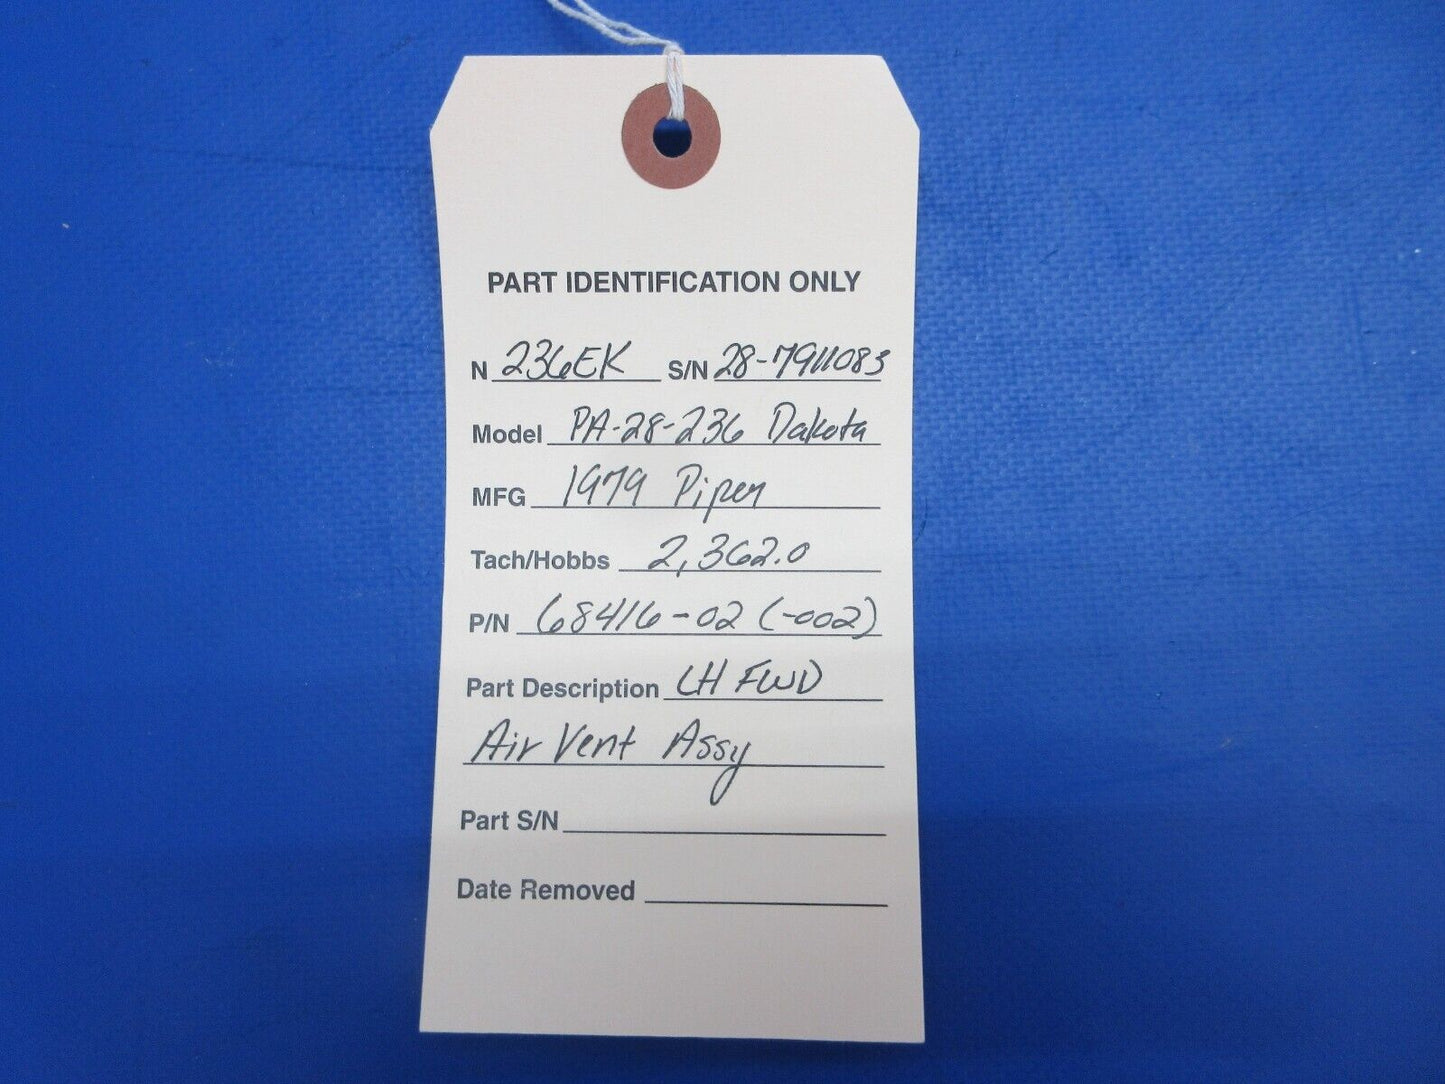 PART IDENTIFICATION ONLY
N 236EK S/N 28-7911083
Model PA-28-236 Dakota
MFG 1979 Piper
Tach/Hobbs 2,362.0
P/N 68416-02 (-002)
Part Description LH FWD
Air Vent Assy
Part S/N
Date Removed